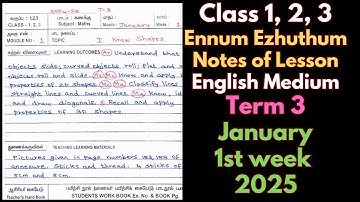 2024-25 T-3
வகுப்பு : 1,2,3
CLASS - 1, 2, 3
பாடம் : கணக்கு
Subject : Maths
மாதம் :
Month January
வாரம் : 1
Week
MODULE NO 1
தலைப்பு
TOPIC I Know Shapes
கற்றல் விளைவுகள் : LEARNING OUTCOMES Understand that
objects slide; curved objects roll. Flat and
objects roll and slide. Know and apply
properties of 2D shapes. Classify lines
straight lines and curved lines. Know, iden
and draw diagonals. Recall and apply
properties of 3D shapes.
துணைக்கருவிகள் : TEACHING LEARNING MATERIALS
Pictures given in page numbers
annexure. Sticks and thread. 4 sticks of
5cm and 8cm.
ஆசிரியர் கையேடு
Teacher's Hand Book
பயிற்சி நூல்
STUDENTS WORK BOOK Ex. No. & BOOK Pg.
Class 1, 2, 3
Ennum Ezhuthum
Notes of Lesson
English Medium
Term 3
January
1st week
2025